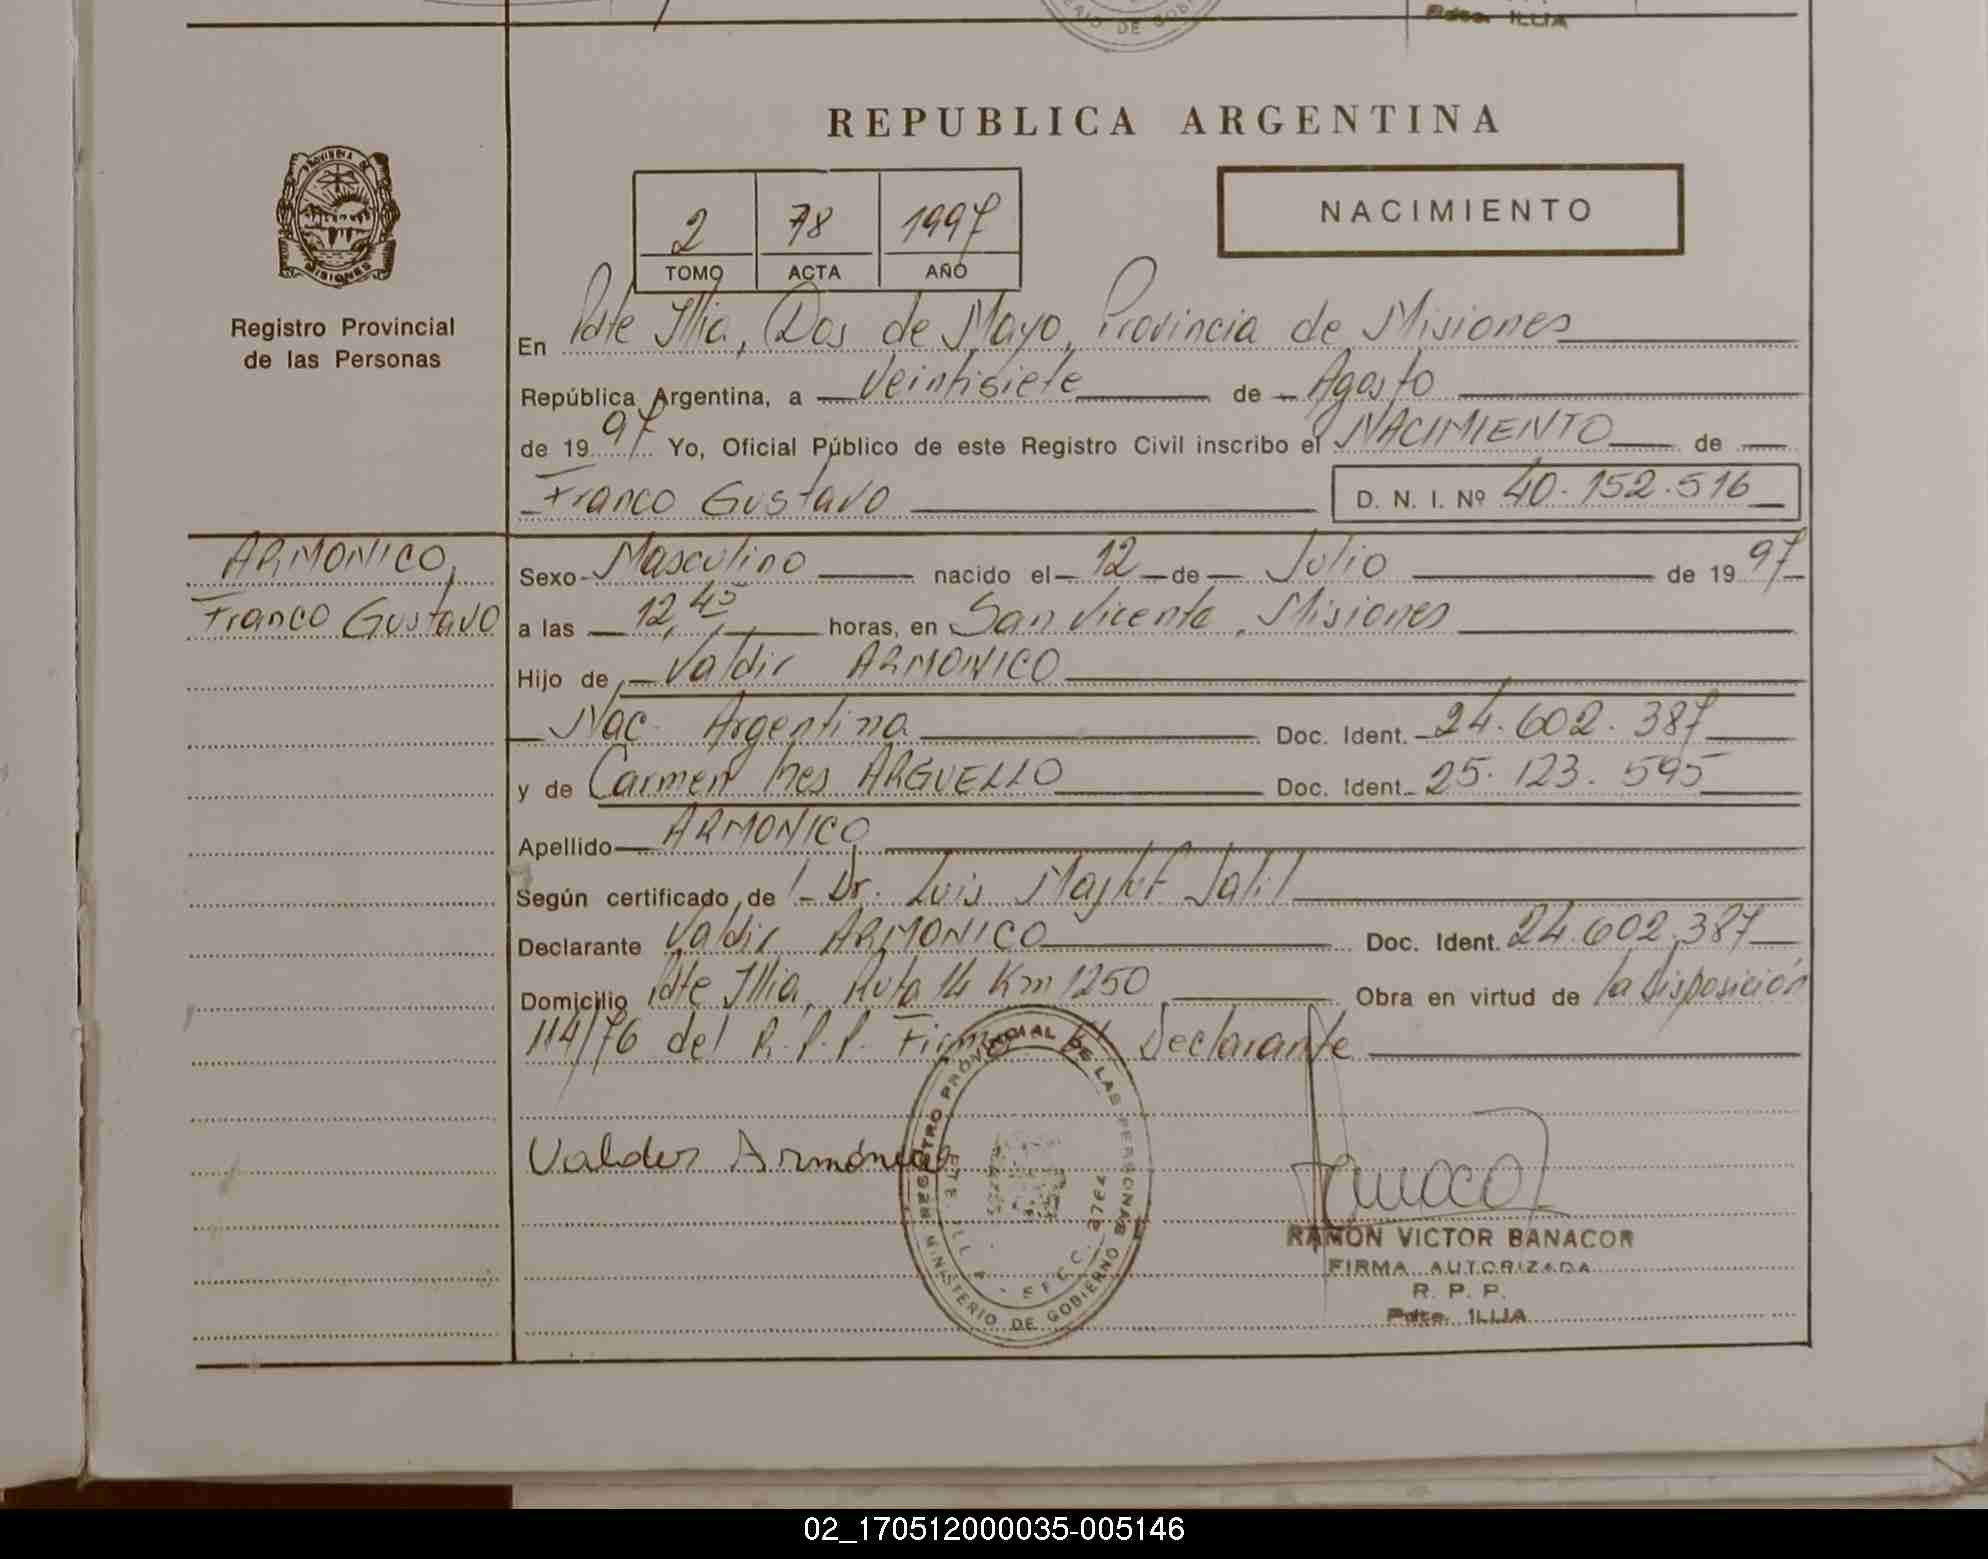 Pdte. ILLIA
REPUBLICA ARGENTINA
PROVINCIA DE
MISIONES
Registro Provincial
de las Personas
2 78 1997
TOMO ACTA AÑO
NACIMIENTO
En Pdte Illia, Dos de Mayo, Provincia de Misiones
República Argentina, a veintisiete de Agosto
de 1997 Yo, Oficial Público de este Registro Civil inscribo el NACIMIENTO de
Franco Gustavo D. N. I. Nº 40.152.516
ARMONICO,
Franco Gustavo
Sexo Masculino nacido el 12 de Julio de 1997
a las 12,45 horas, en San Vicente, Misiones
Hijo de Valdir ARMONICO
Nac. Argentina Doc. Ident. 24.602.387
y de Carmen Ines ARGUELLO Doc. Ident. 25.123.595
Apellido ARMONICO
Según certificado de Dr. Luis Jalil
Declarante Valdir ARMONICO Doc. Ident. 24.602.387
Domicilio Pdte Illia, Ruta 14 Km 1250 Obra en virtud de la Disposición
114/76 del R.P.P. Firma El Declarante
Valder Armónico
REGISTRO PROVINCIAL DE LAS PERSONAS
MINISTERIO DE GOBIERNO
RAMON VICTOR BANACOR
FIRMA AUTORIZADA
R. P. P.
Pdte. ILLIA
02_170512000035-005146